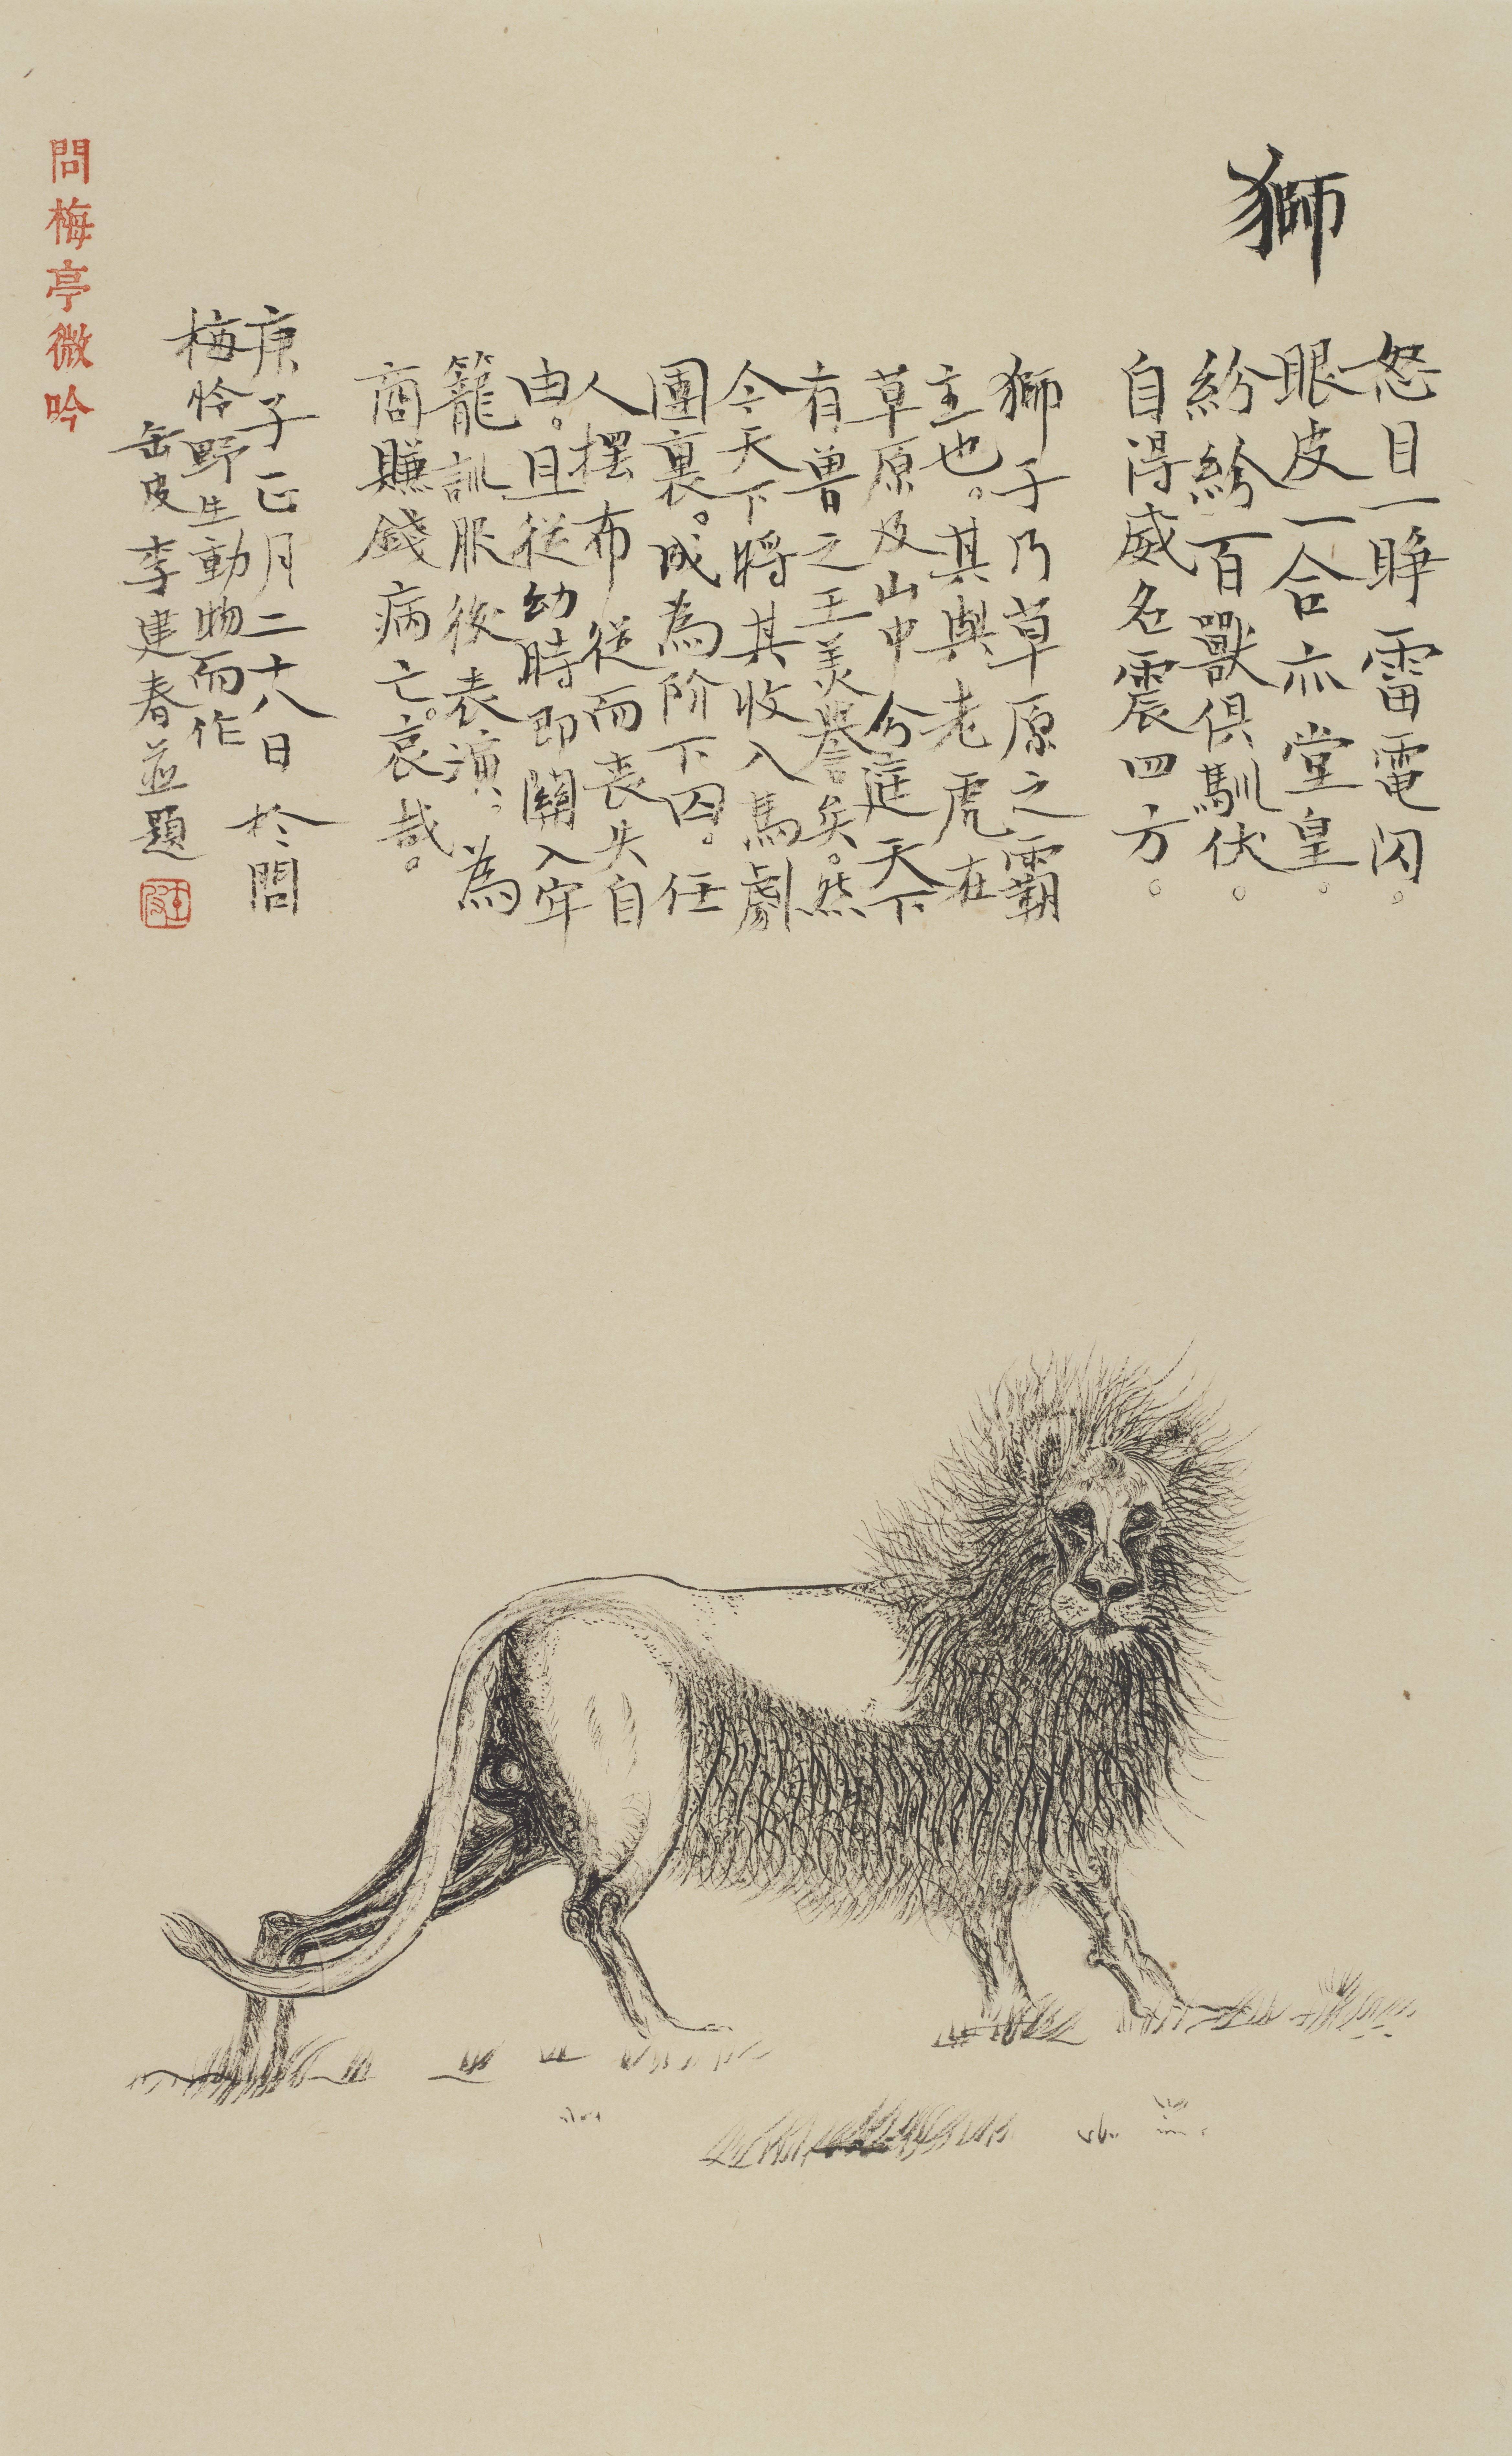 獅
怒目一睁雷電闪。
眼皮一合亦堂皇。
紛紛百獸俱馴伏。
自得威名震四方。
獅子乃草原之霸
主也。其與老虎在
草原及山中分庭天下
有兽之王美譽矣。然
今天下將其收入馬劇
團裏。成為阶下囚。任
人摆布從而丧失自
由。且從幼時即關入牢
籠訓服後表演。為
商賺錢病亡。哀哉。
庚子正月二十八日於問
梅怜野生動物而作
缶皮李建春並題
問梅亭微吟